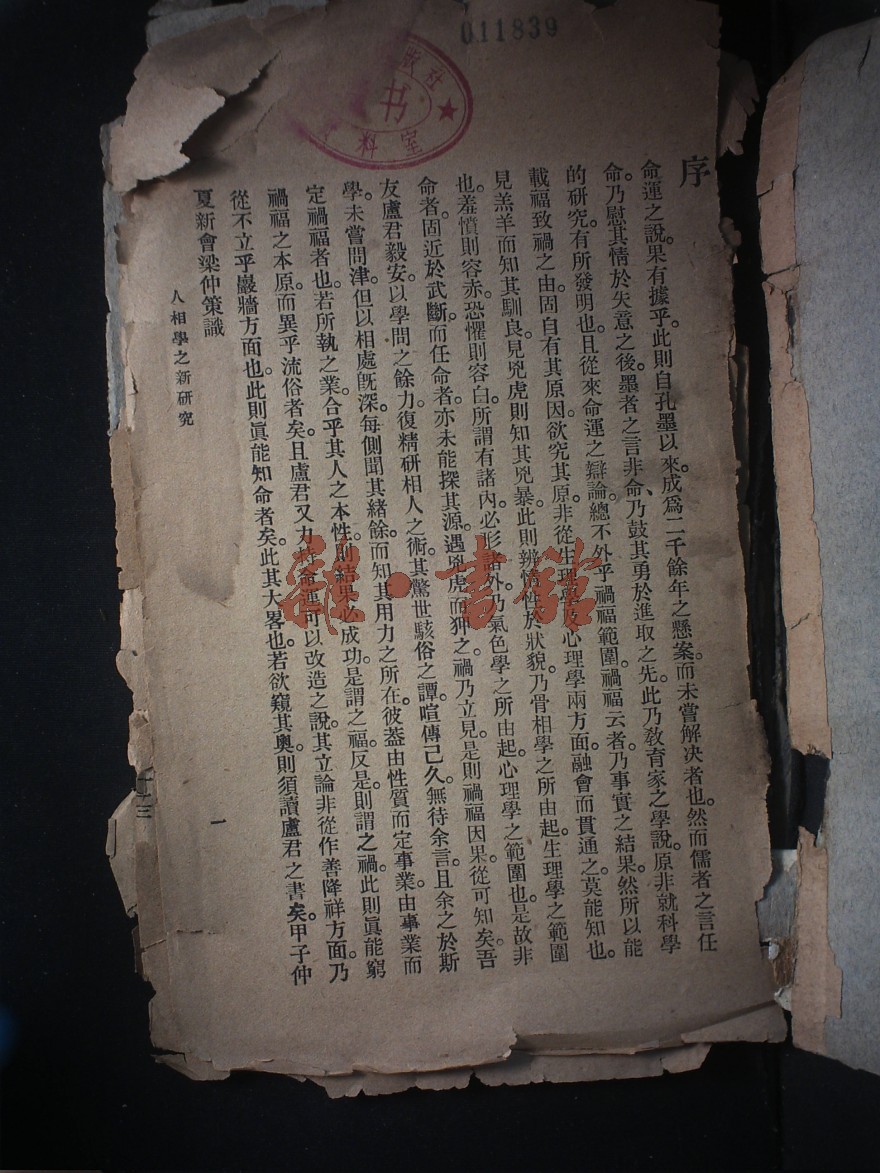 011839
版社
书
料室
序
命運之說。果有據乎。此則自孔墨以來。成爲二千餘年之懸案。而未嘗解決者也。然而儒者之言任
命。乃慰其情於失意之後。墨者之言非命、乃鼓其勇於進取之先。此乃敎育家之學說。原非就科學
的研究有所發明也。且從來命運之辯論。總不外乎禍福範圍。禍福云者。乃事實之結果。然所以能
載福致禍之由。固自有其原因。欲究其原。非從生理學及心理學兩方面融會而貫通之。莫能知也。
見羔羊而知其馴良。見兇虎則知其兇暴。此則辨情性於狀貌。乃骨相學之所由起。生理學之範圍
也。羞憤則容赤。恐懼則容白。所謂有諸內。必形諸外。乃氣色學之所由起。心理學之範圍也。是故非
命者。固近於武斷。而任命者。亦未能探其源。遇兇虎而狎之。禍乃立見。是則禍福因果。從可知矣。吾
友盧君毅安。以學問之餘力。復精研相人之術。其驚世駭俗之譚。喧傳已久。無待余言。且余之於斯
學。未嘗問津。但以相處旣深。每側聞其緒餘。而知其用力之所在。彼蓋由性質而定事業。由事業而
定禍福者也。若所執之業。合乎其人之本性。則結果必成功。是謂之福。反是。則謂之禍。此則眞能窮
禍福之本原。而異乎流俗者矣。且盧君又力持命運可以改造之說。其立論非從作善降祥方面。乃
從不立乎巖牆方面也。此則眞能知命者矣。此其大畧也。若欲窺其奧。則須讀盧君之書矣。甲子仲
夏新會梁仲策識
人相學之新研究
一
雜·書館